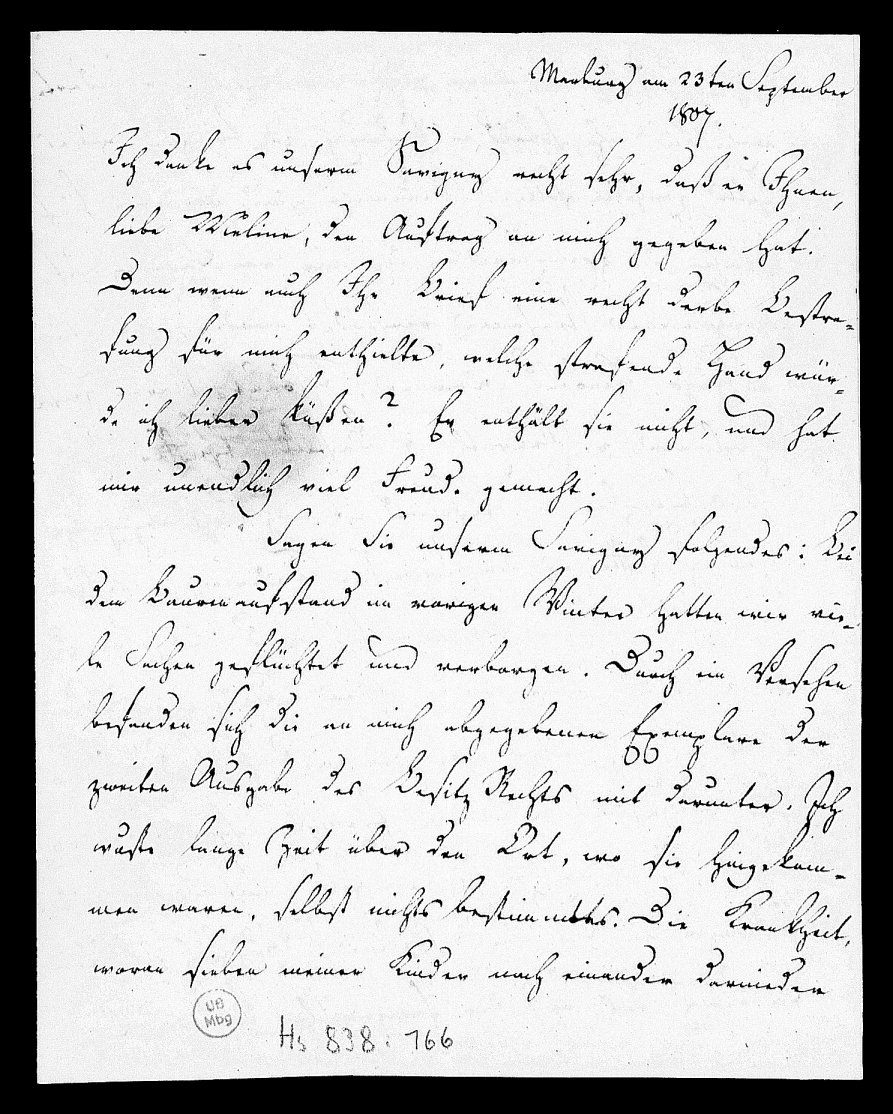 Marburg am 23ten September
1807.
Ich danke es unserm Savigny recht sehr, daß er Ihnen,
liebe Meline, den Auftrag an mich gegeben hat.
Denn wenn auch Ihr Brief eine recht derbe Bestra-
fung für mich enthielte, welche strafende Hand wür-
de ich lieber küßen? Er enthält sie nicht, und hat
mir unendlich viel Freude gemacht.
Sagen Sie unserm Savigny folgendes: Bei
dem Bauernaufstand im vorigen Winter hatten wir vie-
le Sachen geflüchtet und verborgen. Durch ein Versehen
befanden sich die an mich abgegebenen Exemplare der
zweiten Ausgabe des Besitz Rechts mit darunter. Ich
wuste lange Zeit über den Ort, wo sie hingekom-
men waren, selbst nichts bestimmtes. Die Krankheit,
woran sieben meiner Kinder nach einander darnieder
UB
Mbg
Hs 838:766